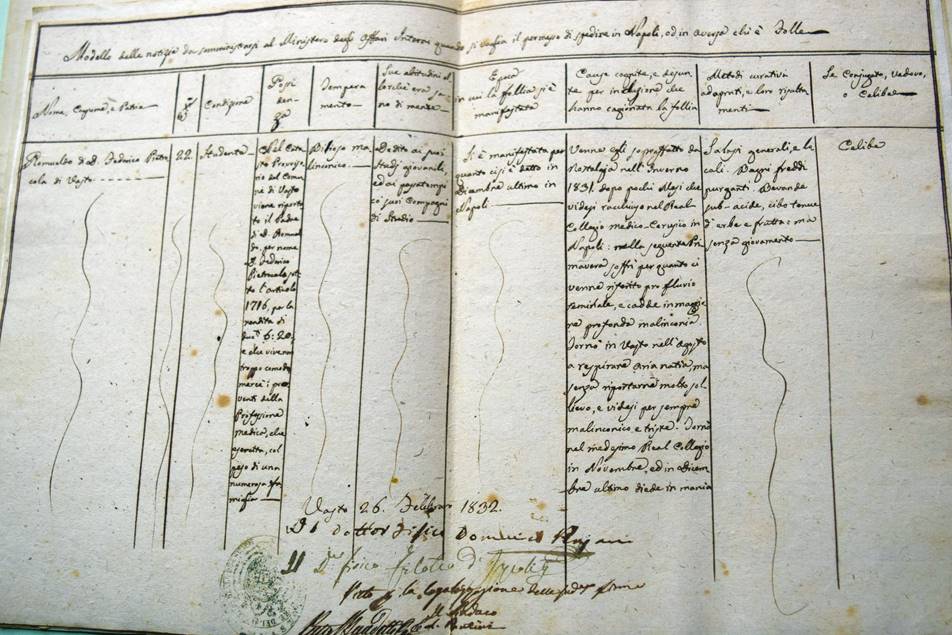 Modello delle notizie da somministrarsi al Ministero degli Affari Interni quando si voglia il permesso di spedire in Napoli, od in Aversa chi è Folle
Nome, Cognome, e Patria
Età
Condizione
Possi
den-
za
Tempera
mento
Sue abitudini al
lorchè era sa
no di mente
Epoca
in cui la follia si è
manifestata
Cause cognite, e desun
te per induzione che
hanno cagionata la follia
Metodi curativi
adoprati, e loro risulta
menti
Se Conjugato, Vedovo,
o Celibe
Romualdo di D. Federico Pietro
cola di Vasto
22.
Studente
Nel Cata
sto Provviso
rio del Comu
ne di Vasto
viene riporta
to il Padre
di D. Romual
do, per nome
D. Federico
Pietrocola sot
to l'articolo
1716, per la
rendita di
duc.ti 6:20,
e che vive non
troppo comodo
mercè i pro
venti della
Professione
medica, che
esercita, col
peso di una
numerosa fa
miglia
Bilioso ma
linconico
Dedito ai suoi
Studj giovanili,
ed ai passatempi
co' suoi Compagni
di Studio
Si è manifestata per
quanto ci si è detto in
Dicembre ultimo in
Napoli
Venne egli sopraffatto da
Nostalgia nell'Inverno
1831. dopo pochi Mesi che
videsi racchiuso nel Real
Collegio medico-Cerusico in
Napoli: nella seguente Pri
mavera soffrì per quanto ci
venne riferito profluvio
seminale, e cadde in maggio
re profonda malinconia.
Tornò in Vasto nell'Agosto
a respirare aria natia, ma
senza riportarne molto sol
lievo, e videsi per sempre
malinconico e triste. Tornò
nel medesimo Real Collegio
in Novembre, ed in Dicem
bre ultimo diede in mania
Salassi generali, e lo
cali. Bagni freddi
purganti. Bevande
sub-acide, cibo tenue
d'erbe e frutta: ma
senza giovamento
Celibe
Vasto 26. Febbraro 1832.
Dottor Fisico Domenico
fisico Filoteo d'
Visto per la legalizzazione delle firme
Il Sindaco